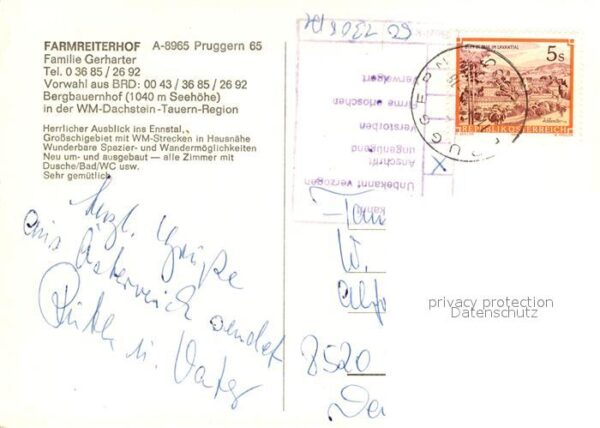 FARMREITERHOF A-8965 Pruggern 65
Familie Gerharter
Tel. 0 36 85 / 26 92
Vorwahl aus BRD: 00 43 / 36 85 / 26 92
Bergbauernhof (1040 m Seehöhe)
in der WM-Dachstein-Tauern-Region
Herrlicher Ausblick ins Ennstal.
Großschigebiet mit WM-Strecken in Hausnähe.
Wunderbare Spazier- und Wandermöglichkeiten
Neu um- und ausgebaut — alle Zimmer mit
Dusche/Bad/WC usw.
Sehr gemütlich.
Herzl. Grüße
aus Österreich sendet
u. Vater
verweigert
Firma erloschen
verstorben
Anschrift
ungenügend
Unbekannt verzogen
X
5s
REPUBLIK ÖSTERREICH
W.
8520
privacy protection
Datenschutz